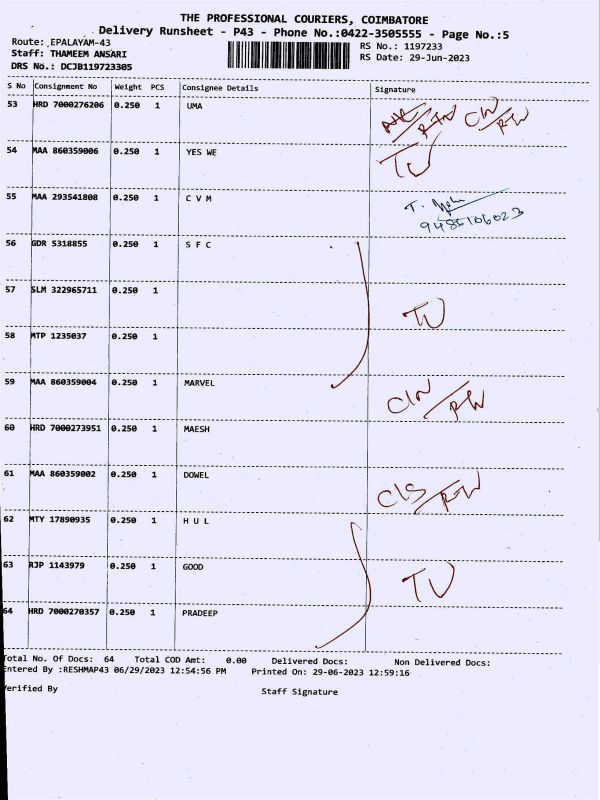 THE PROFESSIONAL COURIERS, COIMBATORE
Delivery Runsheet - P43 - Phone No.:0422-3505555 - Page No.:5
Route: EPALAYAM-43
RS No.: 1197233
Staff: THAMEEM ANSARI
RS Date: 29-Jun-2023
DRS No.: DCJB119723305
S No Consignment No Weight PCS Consignee Details Signature
53 HRD 7000276206 0.250 1 UMA
54 MAA 860359006 0.250 1 YES WE
55 MAA 293541808 0.250 1 C V M
9485106023
56 GDR 5318855 0.250 1 S F C
57 SLM 322965711 0.250 1
58 MTP 1235037 0.250 1
59 MAA 860359004 0.250 1 MARVEL
60 HRD 7000273951 0.250 1 MAESH
61 MAA 860359002 0.250 1 DOWEL
62 MTY 17890935 0.250 1 H U L
63 RJP 1143979 0.250 1 GOOD
64 HRD 7000270357 0.250 1 PRADEEP
Total No. Of Docs: 64 Total COD Amt: 0.00 Delivered Docs: Non Delivered Docs:
Entered By :RESHMAP43 06/29/2023 12:54:56 PM Printed On: 29-06-2023 12:59:16
Verified By Staff Signature